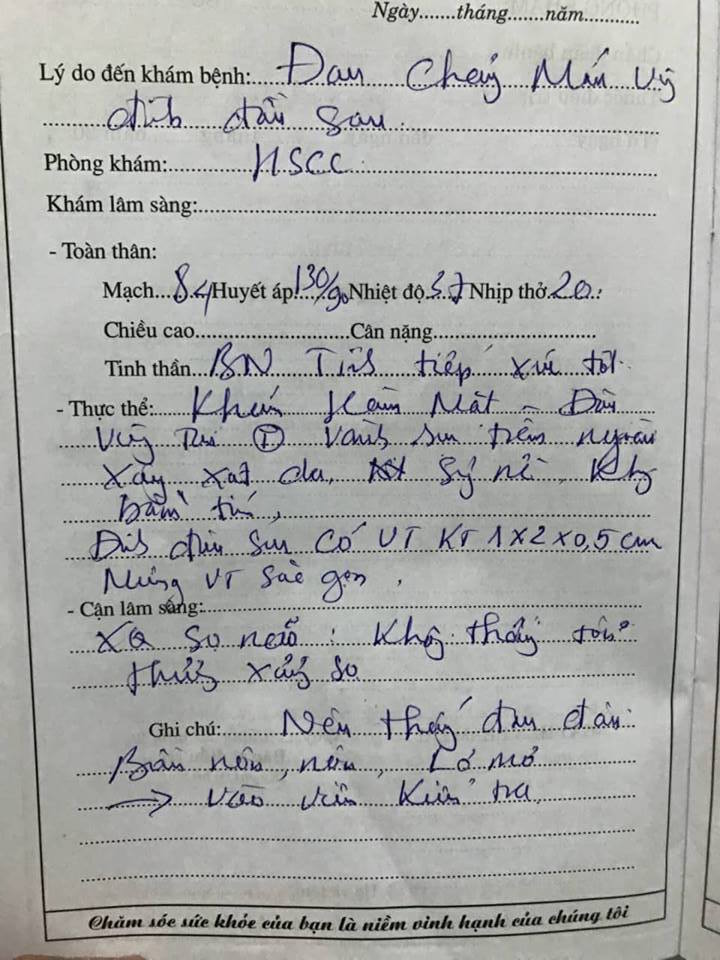 Ngày.......tháng.......năm...........
Lý do đến khám bệnh:.....Đau Chảy Máu vùng
đỉnh đầu sau.
Phòng khám:............HSCC
Khám lâm sàng:
- Toàn thân:
Mạch...84 Huyết áp 130/90 Nhiệt độ 37 Nhịp thở 20
Chiều cao..........................Cân nặng...........................
Tinh thần...BN Tỉnh tiếp xúc tốt
- Thực thể:....Khám Mặt - Đầu
Vùng (T) sau trên ngoài
xây xát da, nề,
bầm tím,
đầu sau Có VT KT 1x2x0,5cm
VT sắc gọn.
- Cận lâm sàng:
XQ Sọ não: Không thấy tổn
thương xương sọ
Ghi chú:......Nếu thấy đau đầu
Buồn nôn, nôn, Lơ mơ
→ vào viện Kiểm tra
Chăm sóc sức khỏe của bạn là niềm vinh hạnh của chúng tôi